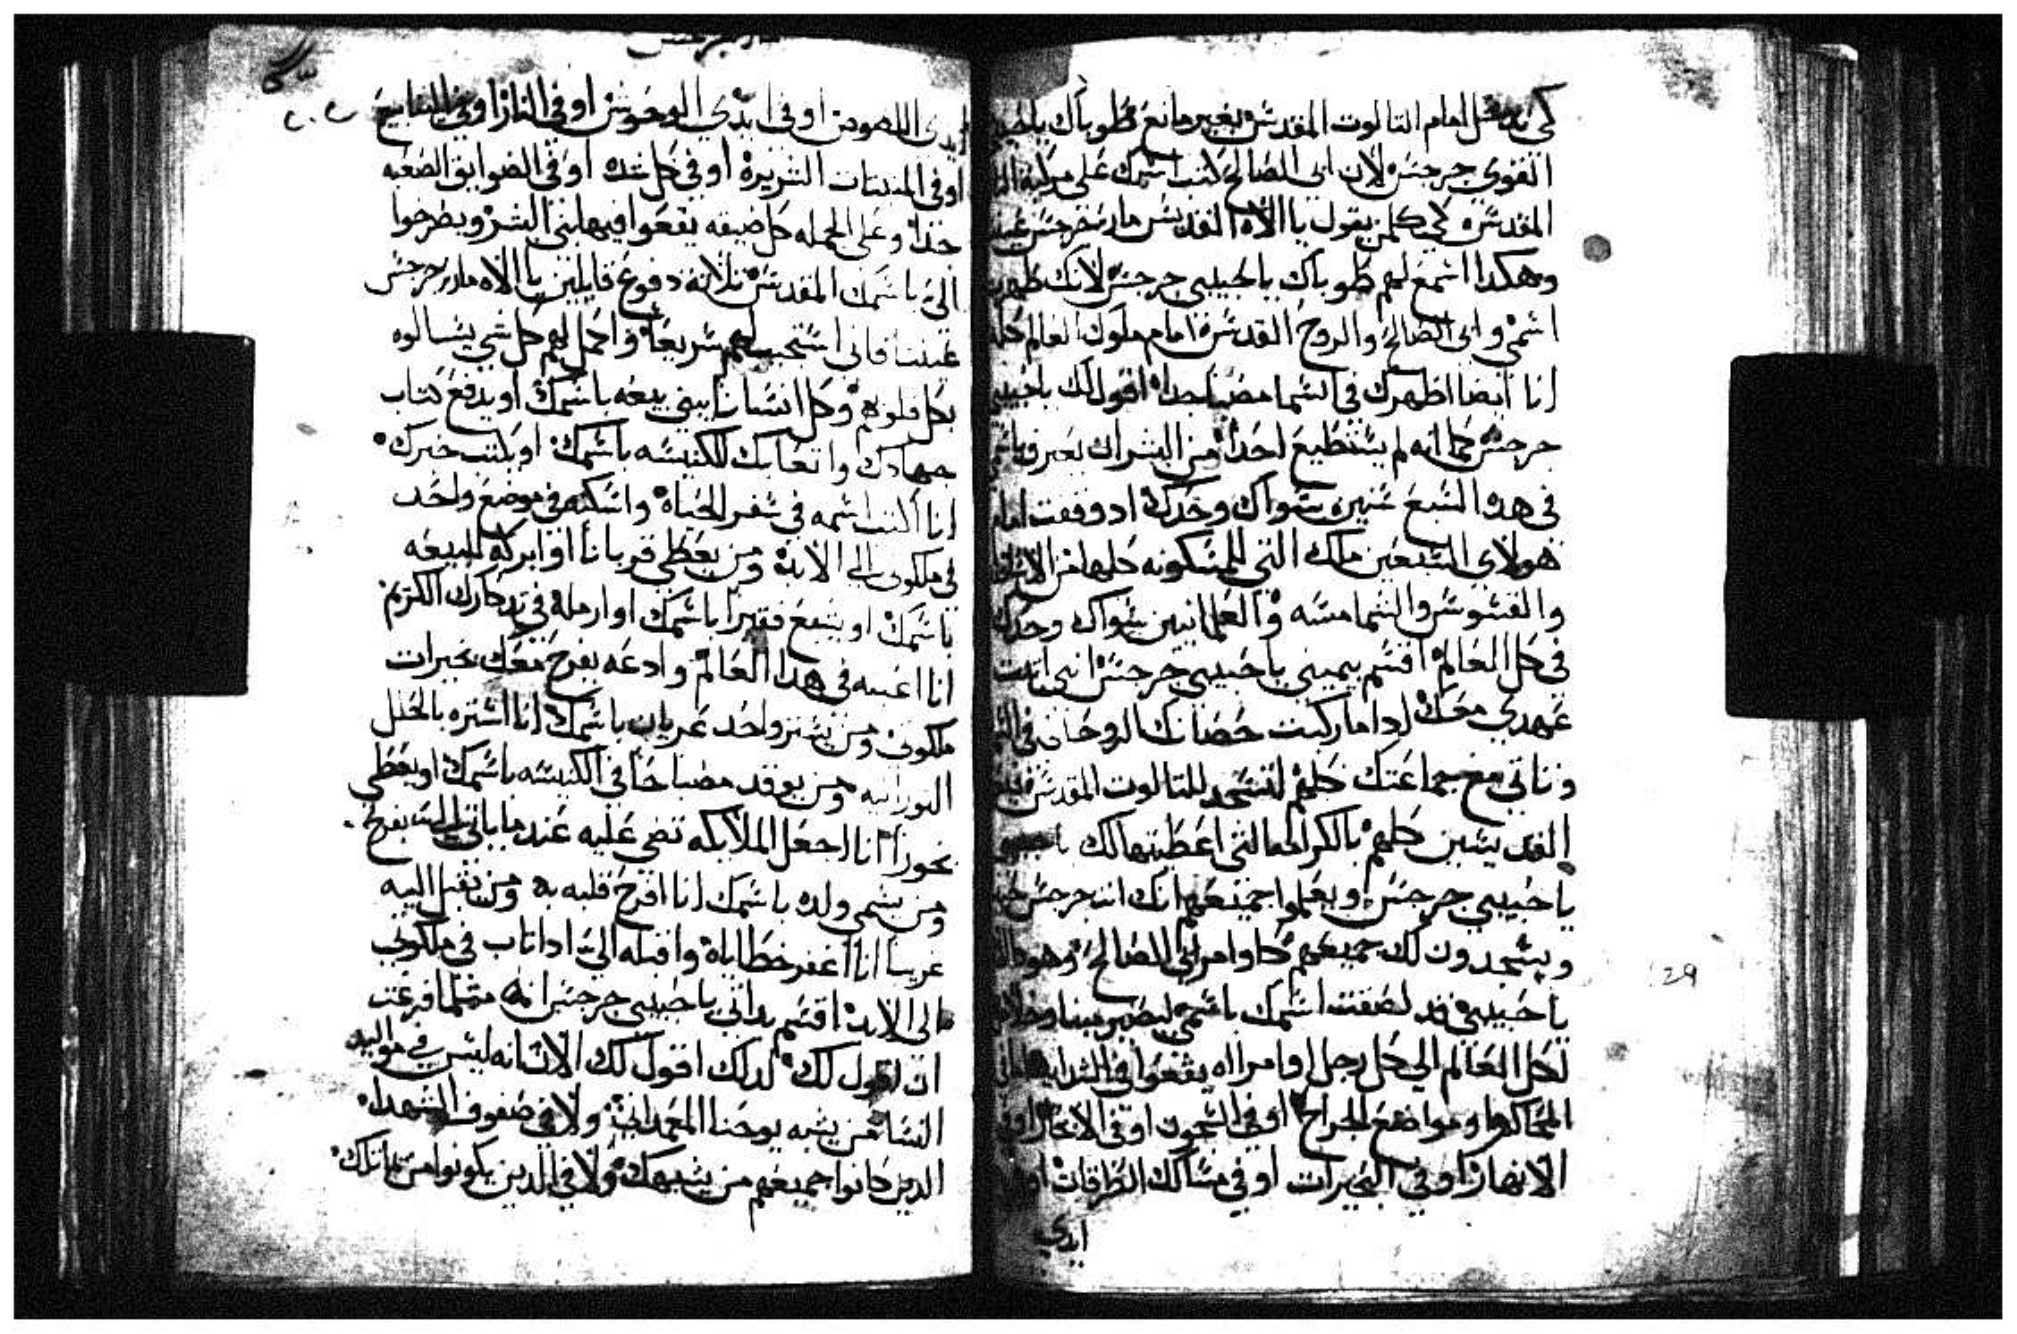 كي تدخل امام التالوت المقدس بغير مانع طوباك يا حبيبي
القوي جرجس لان ابي الصالح كتب اسمك على
المقدسه لكي كلمن يقول يا الاه القديس ماري جرجس
وهكدا اسمع لهم طوباك يا حبيبي جرجس لانك ظهرت
اسمي وابي الصالح والروح القدس امام ملوك العالم
انا ايضا اظهرك في السما مضيا جدا اقول لك يا حبيبي
جرجس كما انه لم يستطيع احدا من البشر ان يعترف باسمي
في هده السبع سنين سواك وحدك اد وقفت امام
هولاي السبعين ملك التي للمسكونه كلها من
والقسوس والشمامسه والعلمانيين سواك وحدك
في كل العالم اقسم بيميني يا حبيبي جرجس انني اتبت
عهدي معك ادا ما ركبت حصانك الروحاني في
وتاتي مع جماعتك كلهم لتسجد للتالوت المقدس
القديسين كلهم بالكرامه التي اعطيتها لك
يا حبيبي جرجس ويعلموا جميعهم انك انت جرجس
ويسجدون لك جميعهم كاوامر ابي الصالح وهوداك
يا حبيبي قد لصقت اسمك باسمي ليصير مينا وخلاص
لكل العالم الي كل رجل او امراه يقعوا في الشدايد
المحاكم او مواضع الجراح او في السجون او في الابحار او في
الانهار او في البحيرات او في مسالك الطرقات او في
ايدي
29
مار جرجس
ايدي اللصوص او في ايدي الوحوش او في النار او في
او في المنيتات الشريره او في كل شده او في الضوايق الصعبه
جدا وعلى الجمله كل ضيقه يقعوا فيها بني البشر ويطرخوا
الي باسمك المقدس تلاته دفوع قايلين يا الاه مار جرجس
عيننا فاني استجيب لهم سريعا واكمل لهم كل شي يسالوه
بكل قلوبهم وكل انسان يبني بيعه باسمك او يدفع كتاب
جهادك واتعابك للكنيسه باسمك او يكتب خبرك
انا اكتب اسمه في سفر الحياه واسكنه في موضع واحد
في ملكوتي الي الابد ومن يعطي قربانا او ابركه للبيعه
باسمك او يشبع فقيرا باسمك او ارمله في تدكارك الكريم
انا اعينه في هدا العالم وادعه يفرح معك بخيرات
ملكوتي ومن يستر واحد عريان باسمك انا استره بالحلل
النورانيه ومن يوقد مصباحا في الكنيسه باسمك او يعطي
بخورا انا اجعل الملايكه تضي عليه عندما ياتي الي بفرح
ومن يسمي ولده باسمك انا افرح قلبه به ومن يقبل اليه
غريبا انا اغفر خطاياه واقبله الي ادا تاب في ملكوتي
الي الابد اقسم بداتي يا حبيبي جرجس انه متلما فرغت
ان اقول لك لدلك اقول لك الان انه ليس في مواليد
النسا من يشبه يوحنا المعمدان ولا في صفوف الشهدا
الدين كانوا جميعهم من يشبهك ولا في الدين يكونوا من تمانك